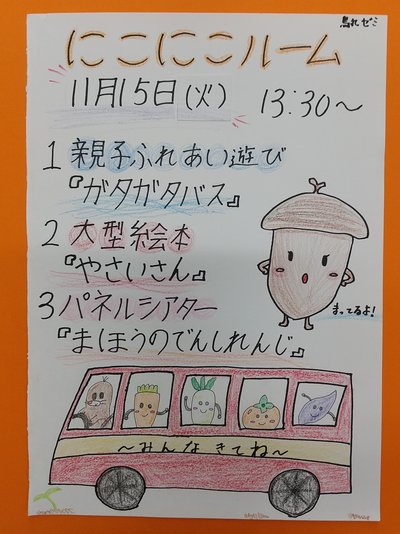 鳥丸ゼミ
にこにこルーム
11月15日(火) 13:30~
1 親子ふれあい遊び
『ガタガタバス』
2 大型絵本
『やさいさん』
3 パネルシアター
『まほうのでんしれんじ』
まってるよ!
~みんなきてね~